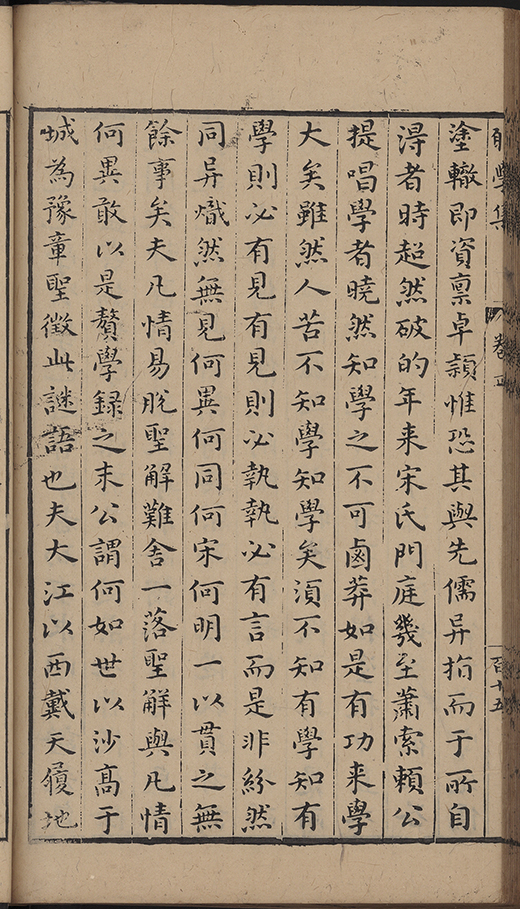 學集 卷 百十五
塗轍即資稟卓穎惟恐其與先儒异指而于所自
淂者時超然破的年来宋氏門庭幾至蕭索頼公
提唱學者曉然知學之不可鹵莽如是有功来學
大矣雖然人苦不知學知學矣湏不知有學知有
學則必有見有見則必執執必有言而是非紛然
同异熾然無見何異何同何宋何明一以貫之無
餘事矣夫凡情易脫聖解難舍一落聖解與凡情
何異敢以是贅學録之末公謂何如世以沙髙于
城為豫章聖徵此謎語也夫大江以西戴天履地